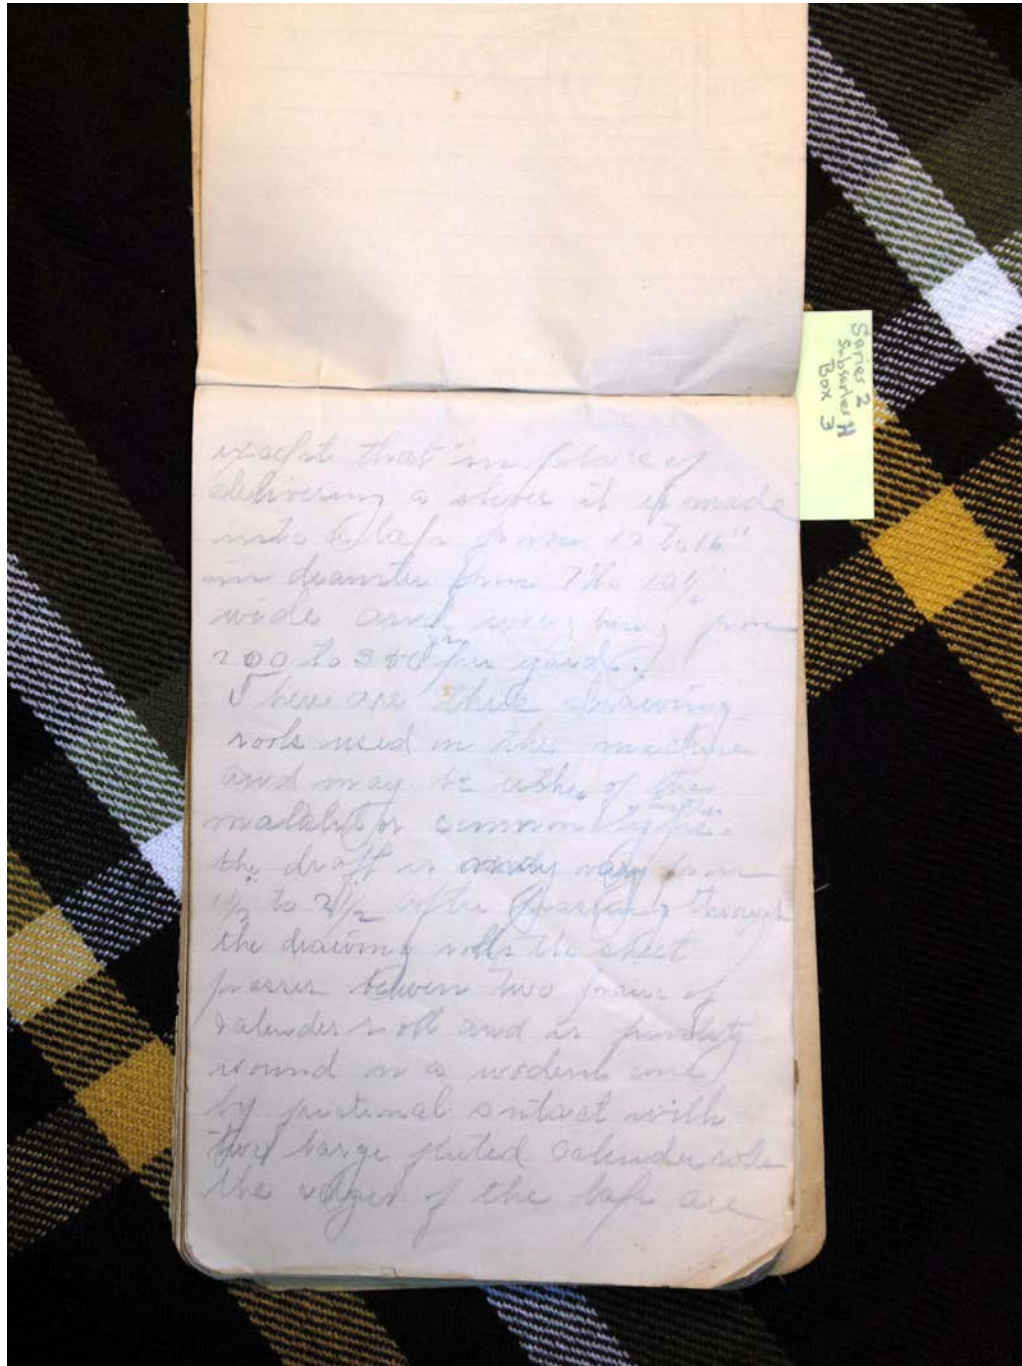 Series 2
Subseries H
Box 3
except that in place of
delivering a sliver it is made
into a lap from 12 to 16"
in diameter from 7 to 10½"
wide and weighing from
200 to 350 gr per yard.
There are three drawing
rools used in this machine
and may be either of the
matalic or common type.
the draft is vary from
1½ to 2½ after passing through
the drawing rolls the sheet
passes between two pairs of
calender roll and is finally
wound on a
by frictional contact with
two large fluted calender rolls
the edges of the lap are